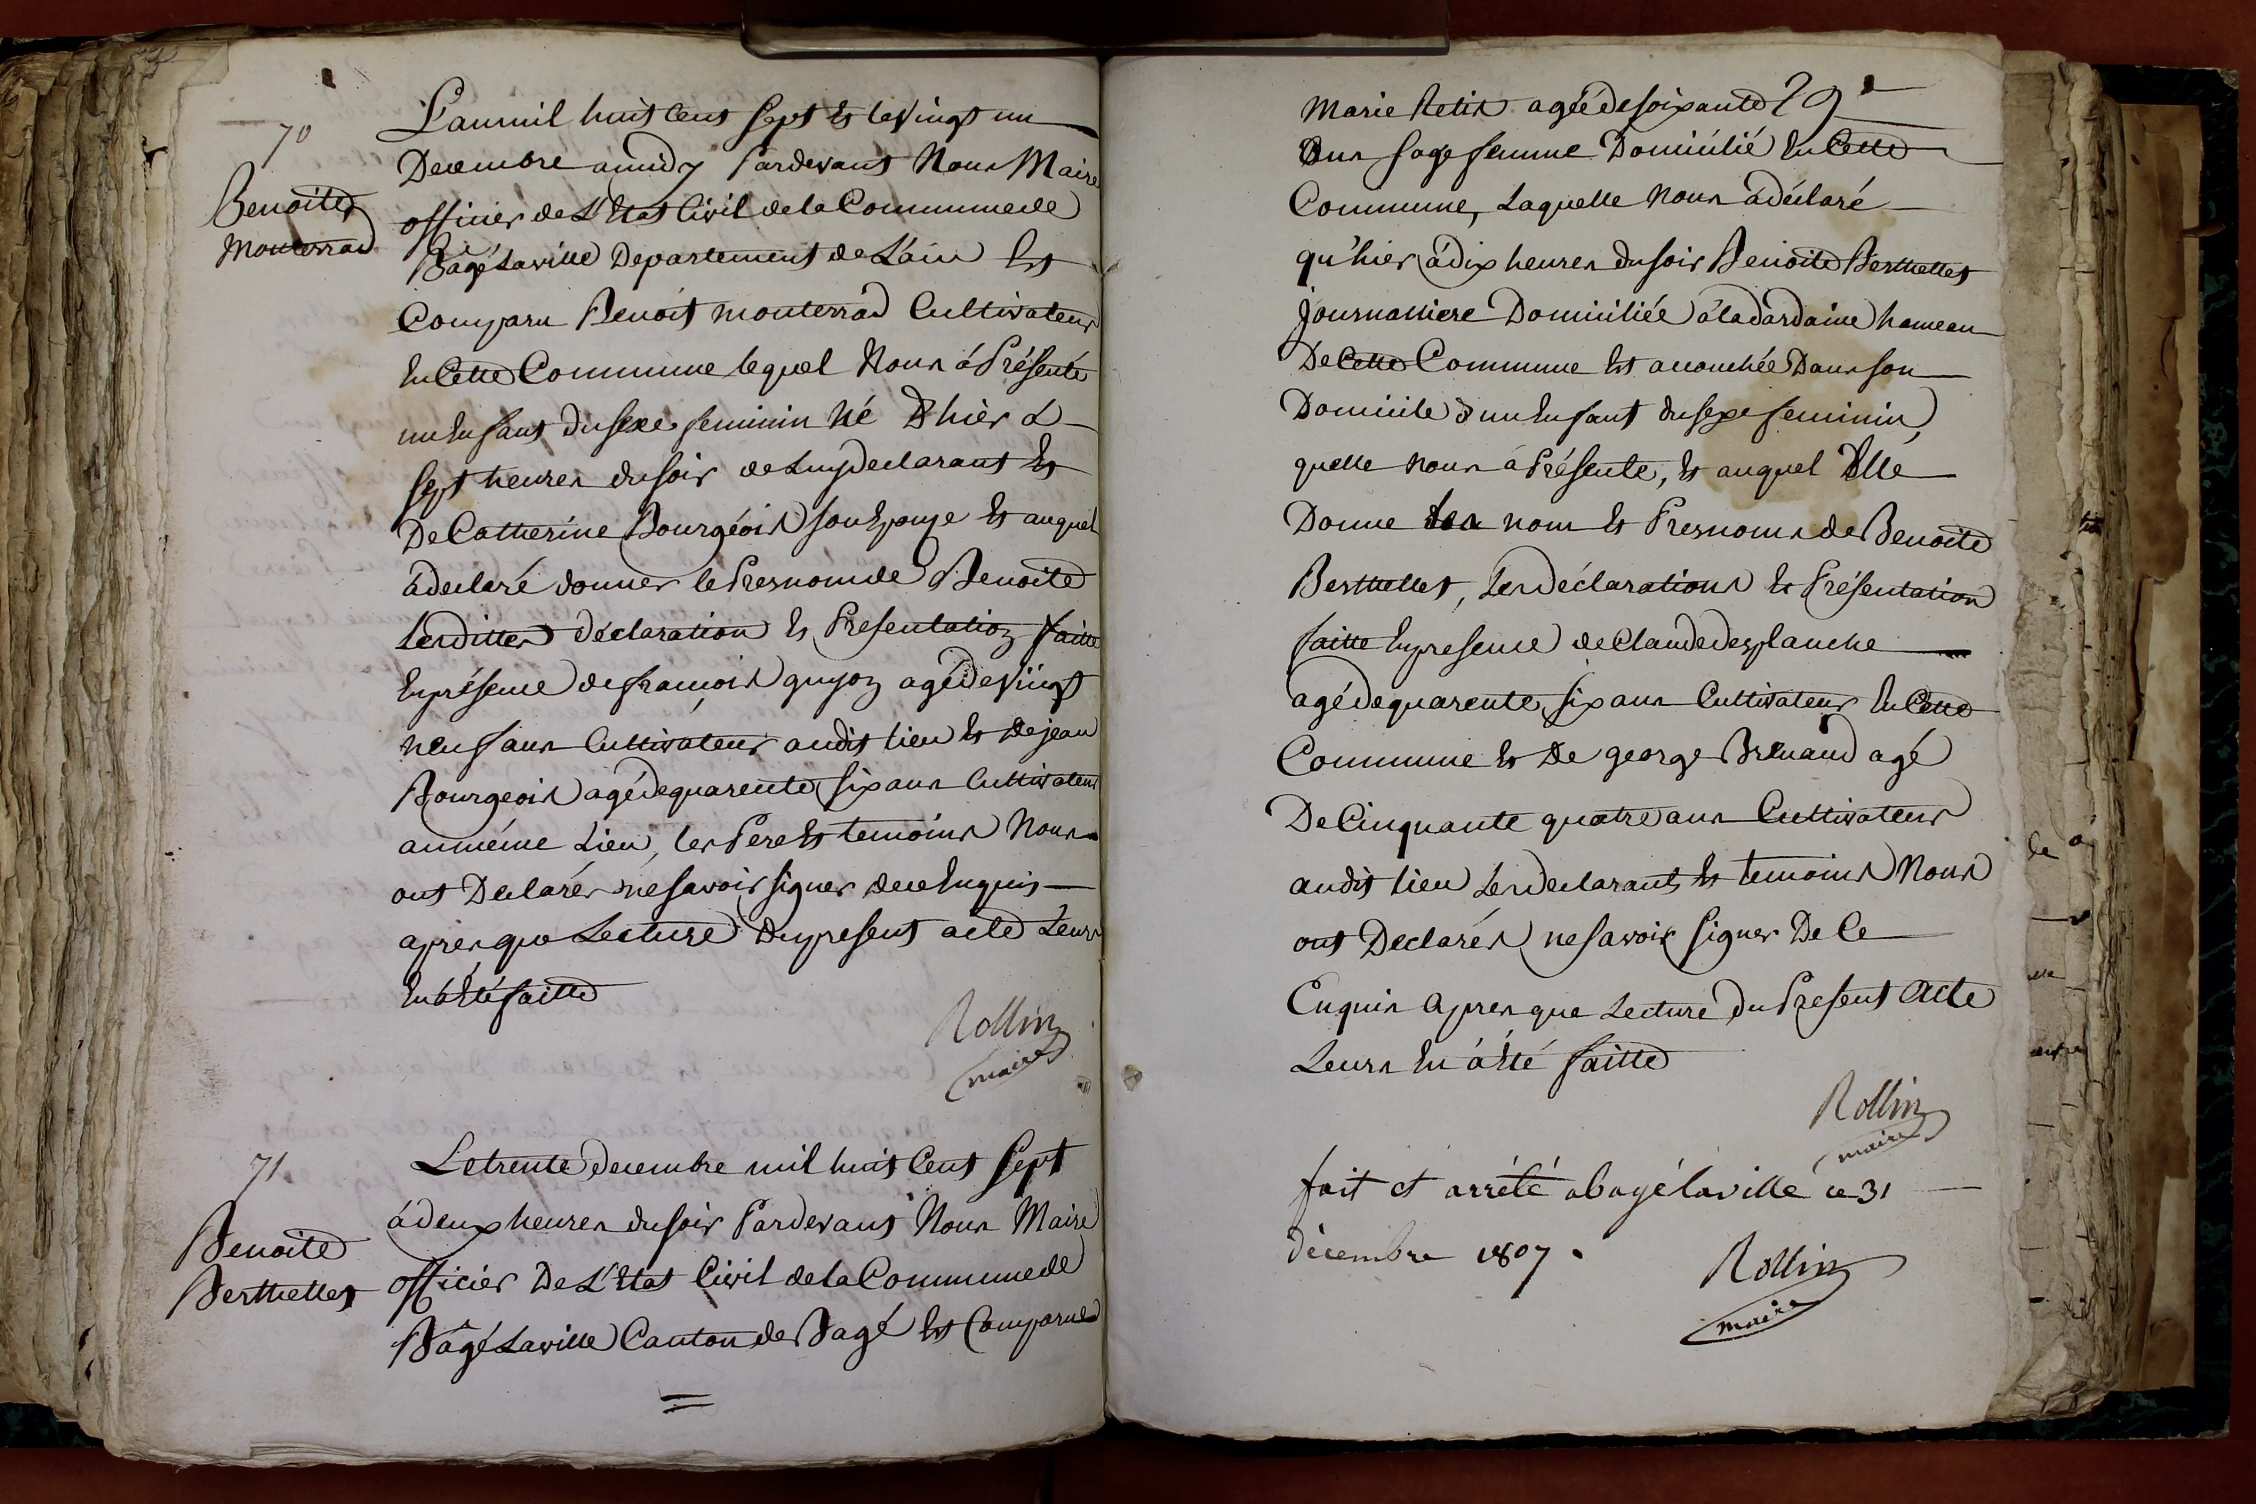 70
Benoite
Monterrad
L'an mil huit Cent Sept Et le Vingt un
Decembre a midy Pardevant Nous Maire
officier de L'Etat Civil de la Commune de
Bagé Laville Departement de L'ain Est
Comparu Benoit monterrad Cultivateur
En Cette Commune lequel Nous á Présenté
un Enfant du sexe feminin Né D'hier a
Sept heures du soir de Luy declarant Et
De Catherine Bourgéois son Epouze Et auquel
á declaré donner le Presnom de Benoite
Lesdittes déclaration Et Presentation faitte
En présence de françois guyon agé de Vingt
neuf ans Cultivateur audit lieu Et de jean
Bourgeois agé de quarente six ans Cultivateur
au méme Lieu, les Pere Et temoins Nous
ont Declarés ne savoir signer de ce Enquis
apres que Lecture du present acte Leurs
En á Eté faitte
Rollin
maire
71
Benoite
Berthellet
Le trente decembre mil huit Cent Sept
á deux heures du soir Pardevant Nous Maire
officier De L'Etat Civil de la Commune de
Bâgé Laville Canton de Bagé Est Comparue
Marie Retis agéé de soixante
ans sage femme Domicilié En Cette
Commune, Laquelle Nous á déclaré
qu'hier á dix heures du soir Benoite Berthellet
journalliere Domiciliée á la dardaine hameau
De Cette Commune Est accouchée Dans son
Domicile d'un Enfant du sexe feminin,
quelle nous á Présenté, Et auquel Elle
Donne les nom Et Presnoms de Benoite
Berthellet, Les déclarations Et Présentation
faitte En presence de Claude desplanche
agé de quarente six ans Cultivateur En Cette
Commune Et De george Brenaud agé
De Cinquante quatre ans Cultivateur
audit lieu Les declarants Et temoins Nous
ont Declarés ne savoir signer De Ce
Enquis Apres que Lecture du Present Acte
Leurs En á Eté faitte
Rollin
maire
fait et arrété a bagé laville ce 31
décembre 1807.
Rollin
maire